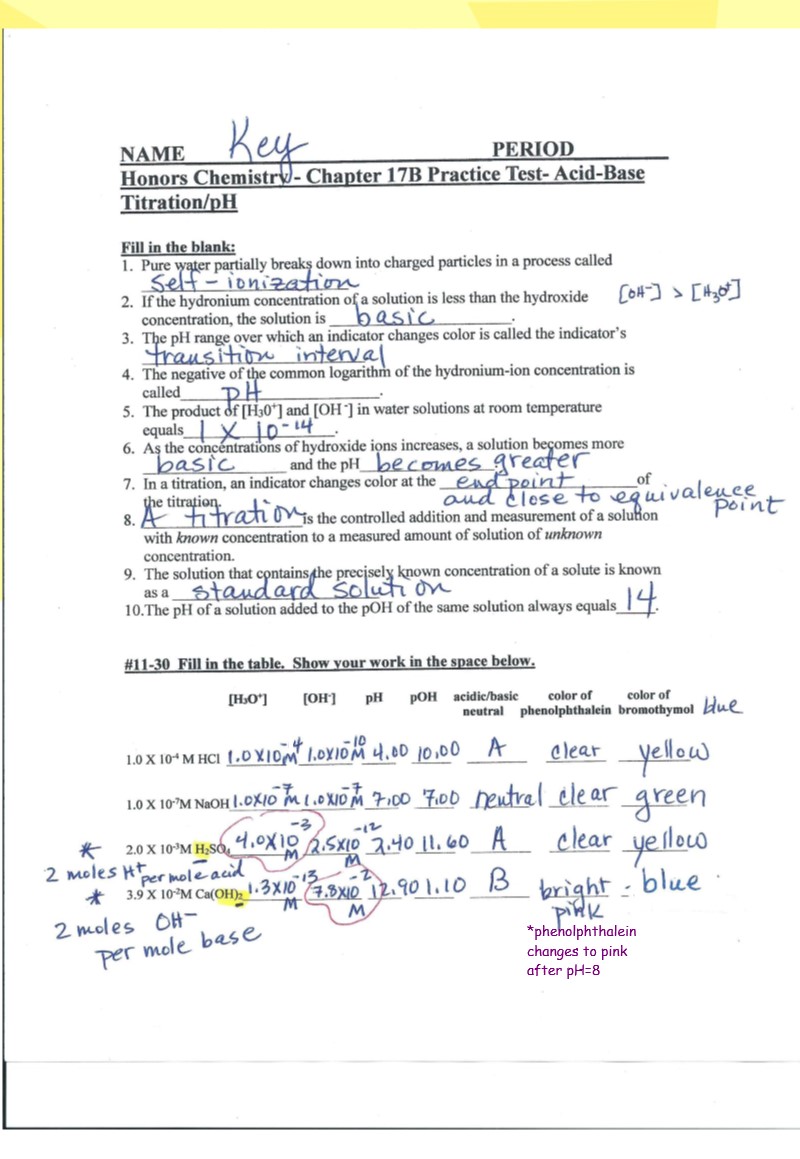 NAME Key PERIOD
Honors Chemistry - Chapter 17B Practice Test- Acid-Base
Titration/pH
Fill in the blank:
1. Pure water partially breaks down into charged particles in a process called
self-ionization
2. If the hydronium concentration of a solution is less than the hydroxide [OH⁻] > [H₃O⁺]
concentration, the solution is basic.
3. The pH range over which an indicator changes color is called the indicator's
transition interval
4. The negative of the common logarithm of the hydronium-ion concentration is
called pH.
5. The product of [H₃0⁺] and [OH⁻] in water solutions at room temperature
equals 1 X 10⁻¹⁴.
6. As the concentrations of hydroxide ions increases, a solution becomes more
basic and the pH becomes greater
7. In a titration, an indicator changes color at the end point of
the titration. and close to equivalence point
8. A titration is the controlled addition and measurement of a solution
with known concentration to a measured amount of solution of unknown
concentration.
9. The solution that contains the precisely known concentration of a solute is known
as a standard solution
10.The pH of a solution added to the pOH of the same solution always equals 14.
#11-30 Fill in the table. Show your work in the space below.
[H₃O⁺] [OH⁻] pH pOH acidic/basic color of color of
neutral phenolphthalein bromothymol blue
1.0 X 10⁻⁴ M HCl 1.0X10⁻⁴ M 1.0X10⁻¹⁰ M 4.00 10.00 A clear yellow
1.0 X 10⁻⁷M NaOH 1.0X10⁻⁷ M 1.0X10⁻⁷ M 7.00 7.00 neutral clear green
* 2.0 X 10⁻³M H₂SO₄ 4.0X10⁻³ M 2.5X10⁻¹² M 2.40 11.60 A clear yellow
2 moles H⁺ per mole acid
* 3.9 X 10⁻²M Ca(OH)₂ 1.3X10⁻¹³ M 7.8X10⁻² M 12.90 1.10 B bright pink - blue
2 moles OH⁻
per mole base
*phenolphthalein
changes to pink
after pH=8